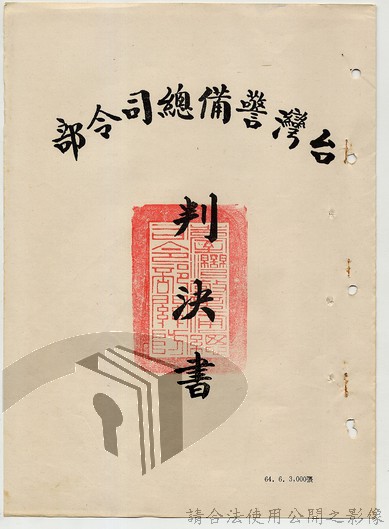 台灣警備總司令部
判決書
64. 6. 3.000張
請合法使用公開之影像